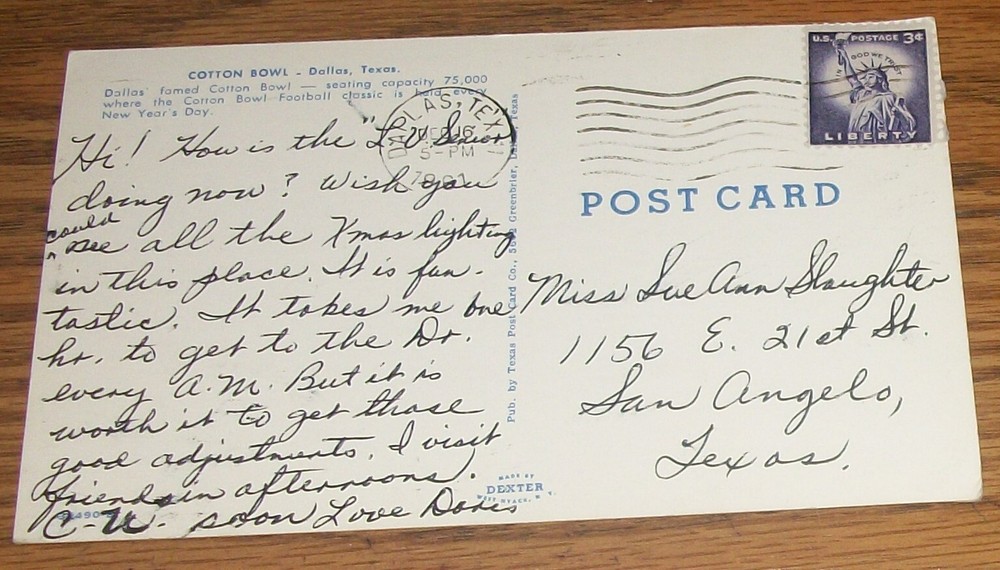 COTTON BOWL - Dallas, Texas.
Dallas' famed Cotton Bowl — seating capacity 75,000
where the Cotton Bowl Football classic is held every
New Year's Day.
Hi! How is the "L V Senior
doing now? Wish you
could
^ see all the Xmas lighting
in this place. It is fan-
tastic. It takes me one
hr. to get to the Dr.
every A.M. But it is
worth it to get those
good adjustments. I visit
friends in afternoons.
C-U- soon Love Doris
DALLAS, TEX
DEC 16
5 - PM
1961
Pub. by Texas Post Card Co., Greenbrier, Texas
MADE BY
DEXTER
WEST NYACK, N. Y.
U.S. POSTAGE 3¢
IN GOD WE TRUST
LIBERTY
POST CARD
Miss Sue Ann Slaughter
1156 E. 21st St.
San Angelo,
Texas.